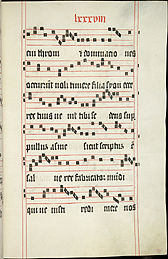 lxxxviii
cum throni et dominatio nes
occurrit noli timere filia syon ecce
rex tuus ve nit tibi se dens sup
pullum asine sicut scriptum e
sal ve rex fabricator mundi
qui ve nisti redi mere nos